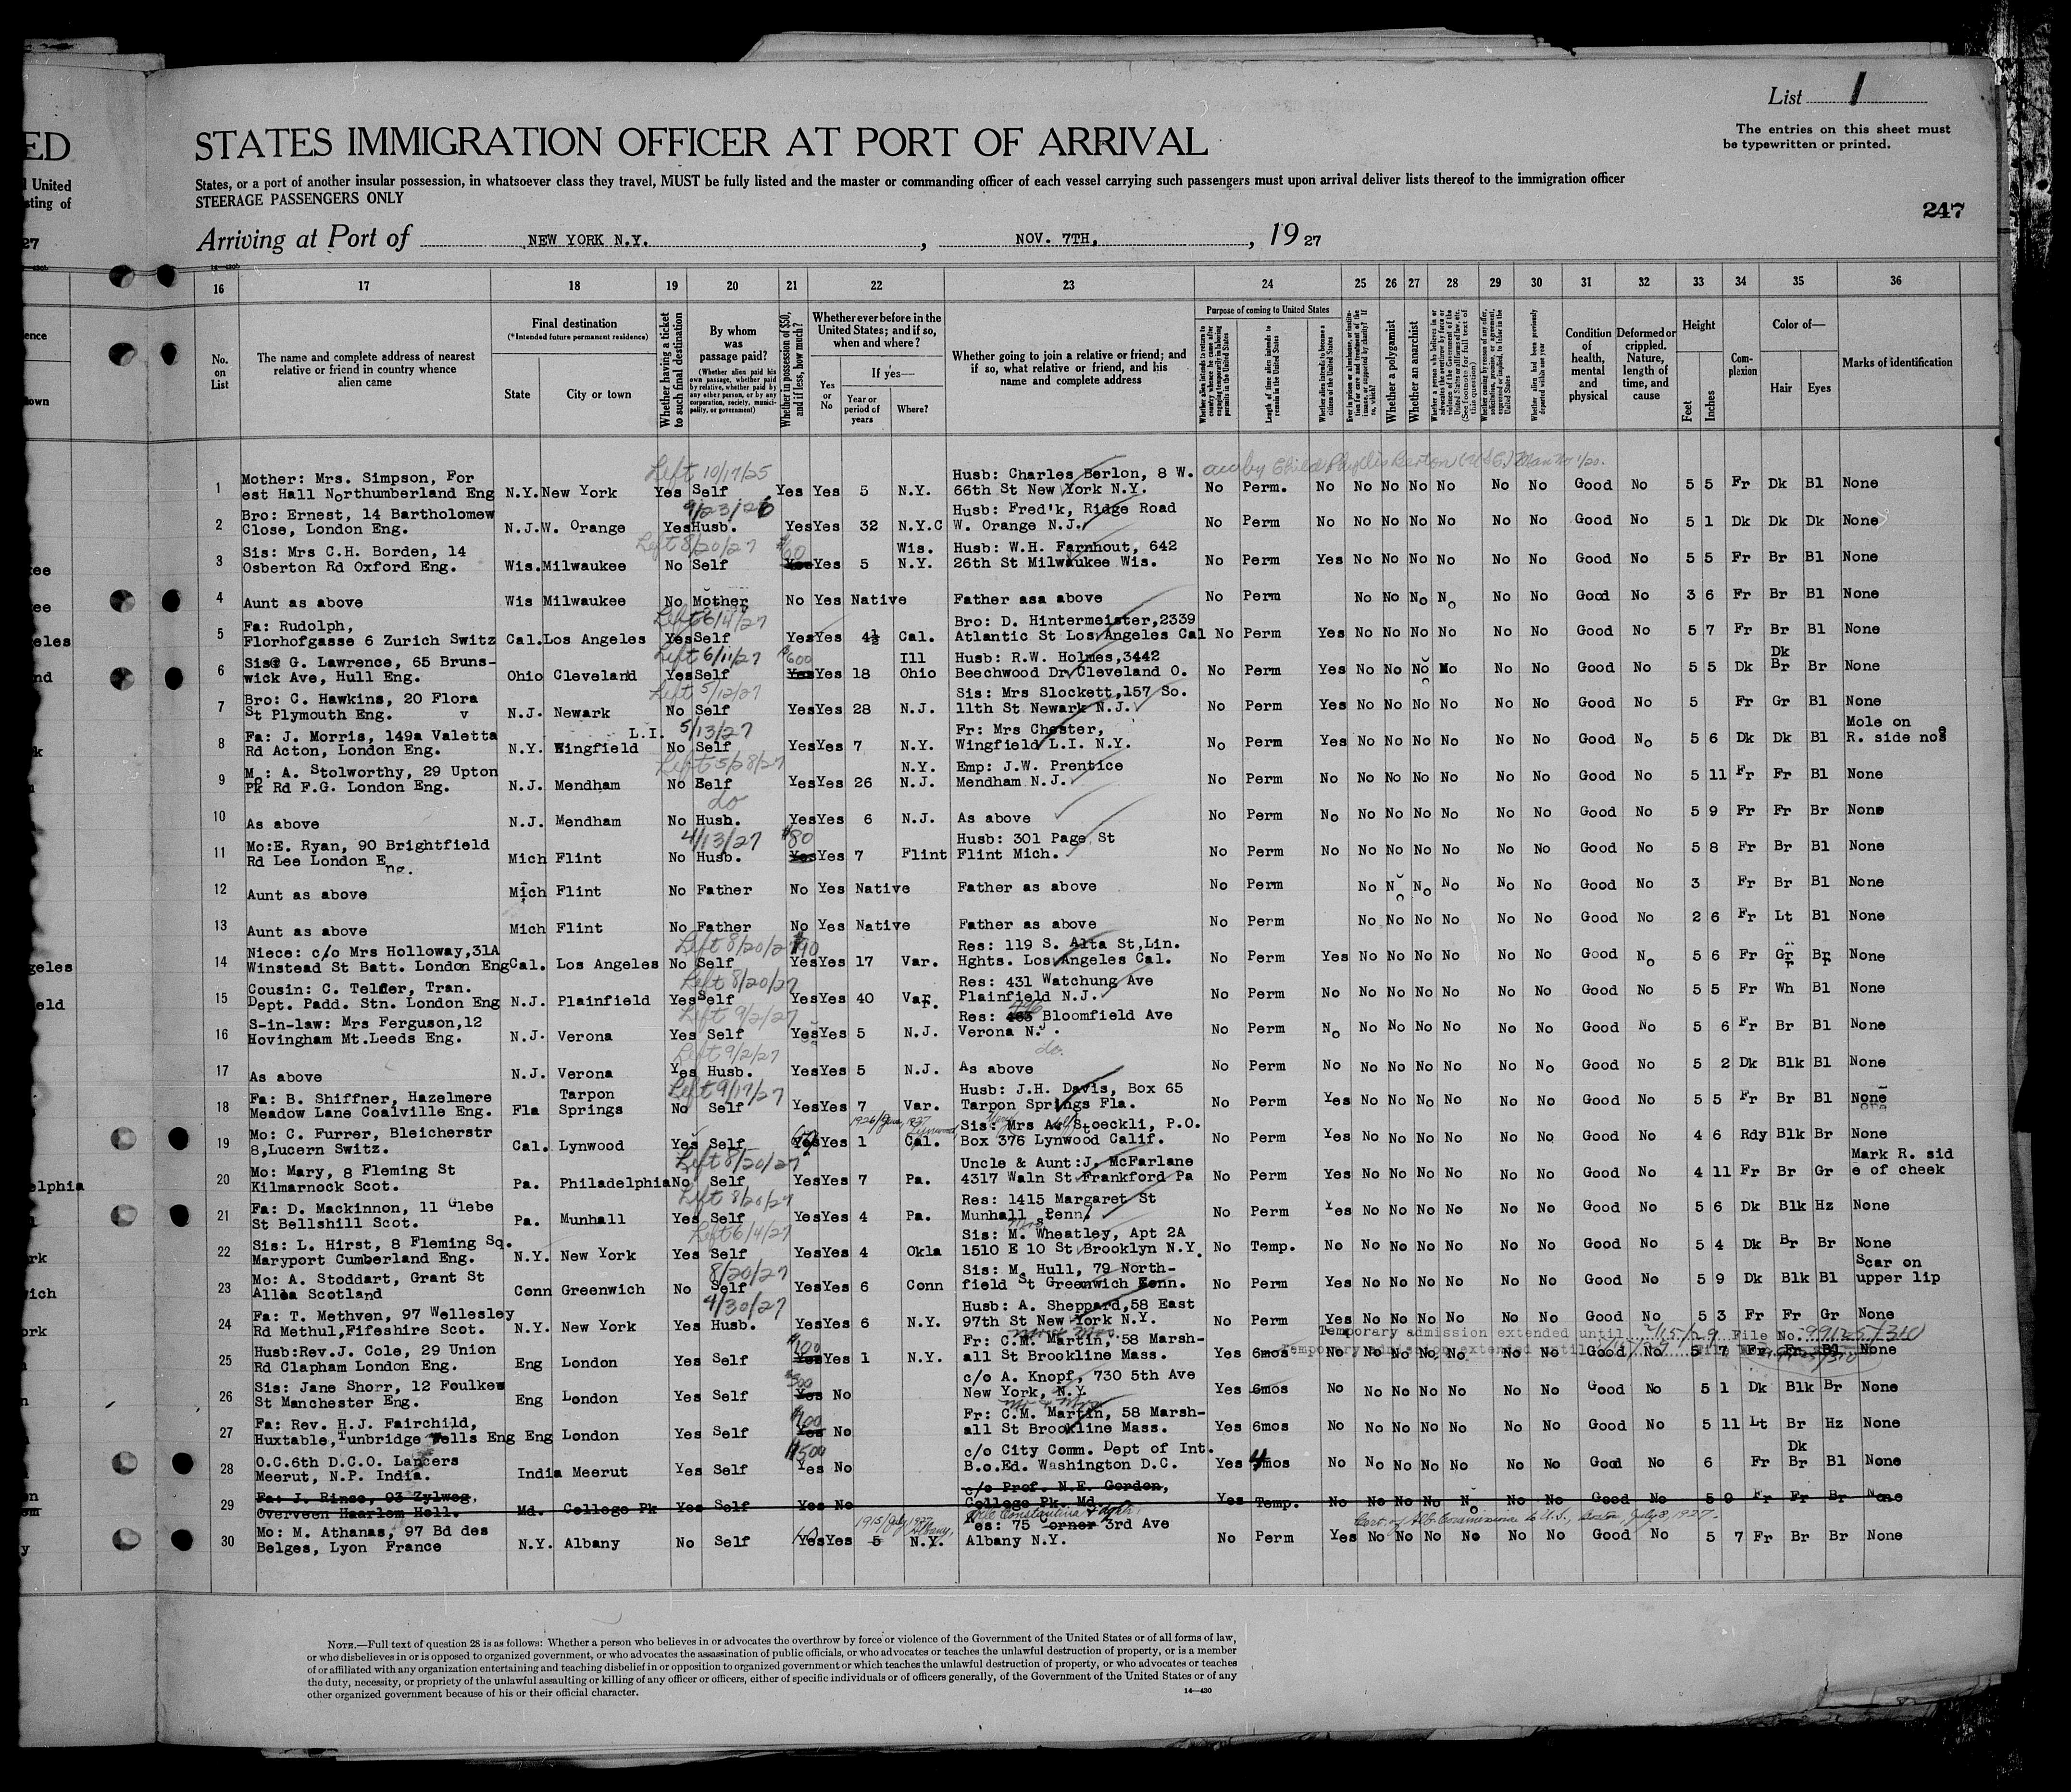 List 1
The entries on this sheet must
be typewritten or printed.
ED
STATES IMMIGRATION OFFICER AT PORT OF ARRIVAL
United
sting of
States, or a port of another insular possession, in whatsoever class they travel, MUST be fully listed and the master or commanding officer of each vessel carrying such passengers must upon arrival deliver lists thereof to the immigration officer
STEERAGE PASSENGERS ONLY
247
27
Arriving at Port of NEW YORK N.Y. , NOV. 7TH, , 19 27
16 17 18 19 20 21 22 23 24 25 26 27 28 29 30 31 32 33 34 35 36
No. on List
The name and complete address of nearest relative or friend in country whence alien came
Final destination
(*Intended future permanent residence)
State
City or town
Whether having a ticket to such final destination
By whom was passage paid?
(Whether alien paid his own passage, whether paid by relative, whether paid by any other person, or by any corporation, society, municipality, or government)
Whether in possession of $50, and if less, how much?
Whether ever before in the United States; and if so, when and where?
Yes or No
If yes—
Year or period of years
Where?
Whether going to join a relative or friend; and if so, what relative or friend, and his name and complete address
Purpose of coming to United States
Length of time alien intends to remain in the United States
Whether alien intends to become a citizen of the United States
Whether a polygamist
Whether an anarchist
Condition of health, mental and physical
Deformed or crippled. Nature, length of time, and cause
Height
Feet
Inches
Complexion
Color of—
Hair
Eyes
Marks of identification
Left 10/17/25
1 Mother: Mrs. Simpson, For
est Hall Northumberland Eng N.Y. New York Yes Self Yes Yes 5 N.Y. Husb: Charles Berlon, 8 W.
66th St New York N.Y. No Perm. No No No No No No No Good No 5 5 Fr Dk Bl None
9/23/26
2 Bro: Ernest, 14 Bartholomew
Close, London Eng. N.J. W. Orange Yes Husb. Yes Yes 32 N.Y.C Husb: Fred'k, Ridge Road
W. Orange N.J. No Perm No No No No No No No Good No 5 1 Dk Dk Dk None
Left 8/20/27 $60
3 Sis: Mrs C.H. Borden, 14
Osberton Rd Oxford Eng. Wis. Milwaukee No Self Yes Yes 5 Wis. N.Y. Husb: W.H. Farnhout, 642
26th St Milwaukee Wis. No Perm Yes No No No No No No Good No 5 5 Fr Br Bl None
4 Aunt as above Wis Milwaukee No Mother No Yes Native Father asa above No Perm No No No No No No Good No 3 6 Fr Br Bl None
Left 6/4/27
5 Fa: Rudolph,
Florhofgasse 6 Zurich Switz Cal. Los Angeles Yes Self Yes Yes 4½ Cal. Bro: D. Hintermeister,2339
Atlantic St Los Angeles Cal No Perm Yes No No No No No No Good No 5 7 Fr Br Bl None
Left 6/11/27 $600
6 Sis: G. Lawrence, 65 Bruns-
wick Ave, Hull Eng. Ohio Cleveland Yes Self Yes Yes 18 Ill Ohio Husb: R.W. Holmes,3442
Beechwood Dr Cleveland O. No Perm Yes No No No No No No Good No 5 5 Dk Dk Br Br None
Left 5/12/27
7 Bro: C. Hawkins, 20 Flora
St Plymouth Eng. N.J. Newark No Self Yes Yes 28 N.J. Sis: Mrs Slockett,157 So.
11th St Newark N.J. No Perm Yes No No No No No No Good No 5 Fr Gr Bl None
5/13/27
8 Fa: J. Morris, 149a Valetta
Rd Acton, London Eng. N.Y. Wingfield L.I. No Self Yes Yes 7 N.Y. Fr: Mrs Chester,
Wingfield L.I. N.Y. No Perm Yes No No No No No No Good No 5 6 Dk Dk Bl Mole on
R. side nose
Left 5/28/27
9 Mo: A. Stolworthy, 29 Upton
Pk Rd F.G. London Eng. N.J. Mendham No Self Yes Yes 26 N.Y. N.J. Emp: J.W. Prentice
Mendham N.J. No Perm No No No No No No No Good No 5 11 Fr Fr Bl None
do
10 As above N.J. Mendham No Husb. Yes Yes 6 N.J. As above No Perm No No No No No No No Good No 5 9 Fr Fr Br None
4/13/27 $80
11 Mo:E. Ryan, 90 Brightfield
Rd Lee London Eng. Mich Flint No Husb. Yes Yes 7 Flint Husb: 301 Page St
Flint Mich. No Perm No No No No No No No Good No 5 8 Fr Br Bl None
12 Aunt as above Mich Flint No Father No Yes Native Father as above No Perm No No No No No No Good No 3 Fr Br Bl None
13 Aunt as above Mich Flint No Father No Yes Native Father as above No Perm No No No No No No Good No 2 6 Fr Lt Bl None
Left 8/20/27 $90
14 Niece: c/o Mrs Holloway,31A
Winstead St Batt. London Eng Cal. Los Angeles No Self Yes Yes 17 Var. Res: 119 S. Alta St,Lin.
Hghts. Los Angeles Cal. No Perm Yes No No No No No No Good No 5 6 Fr Gr Br None
Left 8/20/27
15 Cousin: C. Telfer, Tran.
Dept. Padd. Stn. London Eng N.J. Plainfield Yes Self Yes Yes 40 Var. Res: 431 Watchung Ave
Plainfield N.J. No Perm No No No No No No No Good No 5 5 Fr Wh Bl None
Left 9/2/27
16 S-in-law: Mrs Ferguson,12
Hovingham Mt.Leeds Eng. N.J. Verona Yes Self Yes Yes 5 N.J. Res: Bloomfield Ave
Verona N.J. No Perm No No No No No No No Good No 5 6 Fr Br Bl None
Left 9/2/27 do.
17 As above N.J. Verona Yes Husb. Yes Yes 5 N.J. As above No Perm No No No No No No No Good No 5 2 Dk Blk Bl None
Left 9/17/27
18 Fa: B. Shiffner, Hazelmere
Meadow Lane Coalville Eng. Fla Tarpon Springs No Self Yes Yes 7 Var. Husb: J.H. Davis, Box 65
Tarpon Springs Fla. No Perm Yes No No No No No No Good No 5 5 Fr Br Bl None
19 Mo: C. Furrer, Bleicherstr
8,Lucern Switz. Cal. Lynwood Yes Self Yes Yes 1 Cal. Sis: Mrs A. Stoeckli, P.O.
Box 376 Lynwood Calif. No Perm Yes No No No No No No Good No 4 6 Rdy Blk Br None
Left 8/20/27
20 Mo: Mary, 8 Fleming St
Kilmarnock Scot. Pa. Philadelphia No Self Yes Yes 7 Pa. Uncle & Aunt:J. McFarlane
4317 Waln St Frankford Pa No Perm Yes No No No No No No Good No 4 11 Fr Br Gr Mark R. sid
e of cheek
Left 8/20/27
21 Fa: D. Mackinnon, 11 Glebe
St Bellshill Scot. Pa. Munhall Yes Self Yes Yes 4 Pa. Res: 1415 Margaret St
Munhall Penn. No Perm Yes No No No No No No Good No 5 6 Dk Blk Hz None
Left 6/4/27
22 Sis: L. Hirst, 8 Fleming Sq.
Maryport Cumberland Eng. N.Y. New York Yes Self Yes Yes 4 Okla Sis: Mrs. M. Wheatley, Apt 2A
1510 E 10 St Brooklyn N.Y. No Temp. No No No No No No No Good No 5 4 Dk Br Br None
8/20/27
23 Mo: A. Stoddart, Grant St
Alloa Scotland Conn Greenwich No Self Yes Yes 6 Conn Sis: M. Hull, 79 North-
field St Greenwich Conn. No Perm Yes No No No No No No Good No 5 9 Dk Blk Bl Scar on
upper lip
4/30/27
24 Fa: T. Methven, 97 Wellesley
Rd Methul,Fifeshire Scot. N.Y. New York Yes Husb. Yes Yes 6 N.Y. Husb: A. Sheppard,58 East
97th St New York N.Y. No Perm Yes No No No No No No Good No 5 3 Fr Fr Gr None
Temporary admission extended until File No.
25 Husb:Rev.J. Cole, 29 Union
Rd Clapham London Eng. Eng London Yes Self Yes Yes 1 N.Y. Fr: C.M. Martin, 58 Marsh-
all St Brookline Mass. Yes 6mos No No No No No No No Good No 5 7 Fr Fr Bl None
26 Sis: Jane Shorr, 12 Foulkew
St Manchester Eng. Eng London Yes Self Yes No c/o A. Knopf, 730 5th Ave
New York, N.Y. Yes 6mos No No No No No No No Good No 5 1 Dk Blk Br None
27 Fa: Rev. H.J. Fairchild,
Huxtable,Tunbridge Wells Eng Eng London Yes Self Yes No Fr: C.M. Martin, 58 Marsh-
all St Brookline Mass. Yes 6mos No No No No No No No Good No 5 11 Lt Br Hz None
$500
28 O.C.6th D.C.O. Lancers
Meerut, N.P. India. India Meerut Yes Self Yes No c/o City Comm. Dept of Int.
B.o.Ed. Washington D.C. Yes 4mos No No No No No No No Good No 6 Fr Dk Br Bl None
29 Fa: J. Rinse, 93 Zylweg,
Overveen Haarlem Holl. Md. College Pk Yes Self Yes No c/o Prof. N.E. Gordon,
College Pk. Md. Yes Temp. No No No No No No No Good No 5 9 Fr Fr Br None
30 Mo: M. Athanas, 97 Bd des
Belges, Lyon France N.Y. Albany No Self Yes Yes 5 N.Y. Res: 75 corner 3rd Ave
Albany N.Y. No Perm Yes No No No No No No Good No 5 7 Fr Br Br None
NOTE.—Full text of question 28 is as follows: Whether a person who believes in or advocates the overthrow by force or violence of the Government of the United States or of all forms of law,
or who disbelieves in or is opposed to organized government, or who advocates the assassination of public officials, or who advocates or teaches the unlawful destruction of property, or is a member
of or affiliated with any organization entertaining and teaching disbelief in or opposition to organized government or which teaches the unlawful destruction of property, or who advocates or teaches
the duty, necessity, or propriety of the unlawful assaulting or killing of any officer or officers, either of specific individuals or of officers generally, of the Government of the United States or of any
other organized government because of his or their official character.
14—430